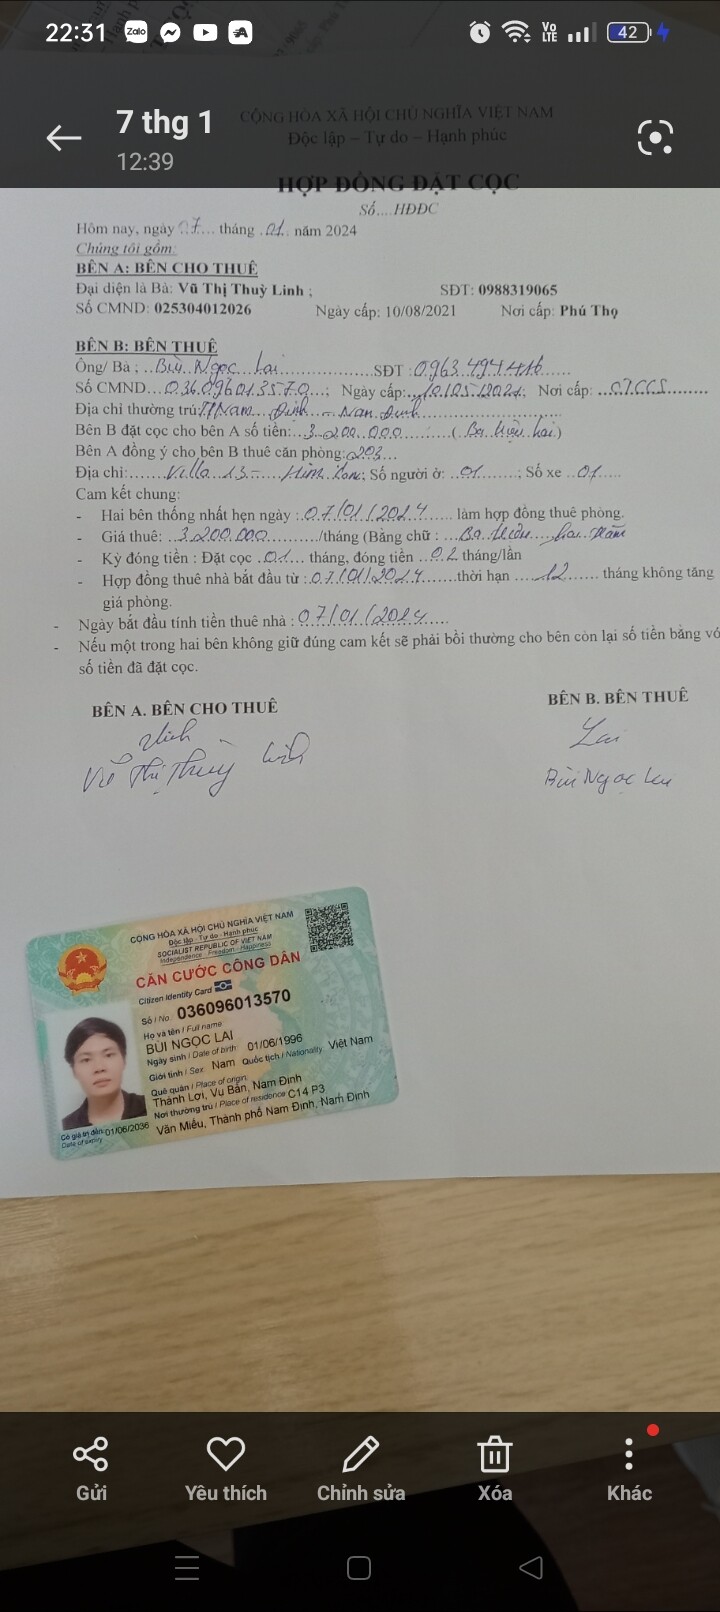 22:31
Zalo
Vo LTE
42
7 thg 1
12:39
CỘNG HÒA XÃ HỘI CHỦ NGHĨA VIỆT NAM
Độc lập – Tự do – Hạnh phúc
HỢP ĐỒNG ĐẶT CỌC
Số....HĐĐC
Hôm nay, ngày 07 tháng 01 năm 2024
Chúng tôi gồm:
BÊN A: BÊN CHO THUÊ
Đại diện là Bà: Vũ Thị Thuỳ Linh ; SĐT: 0988319065
Số CMND: 025304012026 Ngày cấp: 10/08/2021 Nơi cấp: Phú Thọ
BÊN B: BÊN THUÊ
Ông/ Bà : Bùi Ngọc Lai SĐT : 0963 494 416
Số CMND 036096013570 ; Ngày cấp: 10/05/2021; Nơi cấp:
Địa chỉ thường trú: Nam Định - Nam Định
Bên B đặt cọc cho bên A số tiền: 3.200.000 ( Ba triệu hai )
Bên A đồng ý cho bên B thuê căn phòng: 203
Địa chỉ: Villa 13 - ; Số người ở: 01 ; Số xe 01
Cam kết chung:
- Hai bên thống nhất hẹn ngày : 07/01/2024 làm hợp đồng thuê phòng.
- Giá thuê: 3.200.000 /tháng (Bằng chữ : Ba triệu hai trăm
- Kỳ đóng tiền : Đặt cọc 01 tháng, đóng tiền 02 tháng/lần
- Hợp đồng thuê nhà bắt đầu từ : 07/01/2024 thời hạn 12 tháng không tăng
giá phòng.
- Ngày bắt đầu tính tiền thuê nhà : 07/01/2024
- Nếu một trong hai bên không giữ đúng cam kết sẽ phải bồi thường cho bên còn lại số tiền bằng vớ
số tiền đã đặt cọc.
BÊN A. BÊN CHO THUÊ BÊN B. BÊN THUÊ
Linh Lai
Vũ Thị Thuỳ Linh Bùi Ngọc Lai
CỘNG HÒA XÃ HỘI CHỦ NGHĨA VIỆT NAM
Độc lập - Tự do - Hạnh phúc
SOCIALIST REPUBLIC OF VIET NAM
Independence - Freedom - Happiness
CĂN CƯỚC CÔNG DÂN
Citizen Identity Card
Số / No. 036096013570
Họ và tên / Full name
BÙI NGỌC LAI
Ngày sinh / Date of birth 01/06/1996
Giới tính / Sex: Nam Quốc tịch / Nationality Việt Nam
Quê quán / Place of origin:
Thành Lợi, Vụ Bản, Nam Định
Nơi thường trú / Place of residence: C14 P3
Văn Miếu, Thành phố Nam Định, Nam Định
Có giá trị đến: 01/06/2036
Date of expiry
Gửi
Yêu thích
Chỉnh sửa
Xóa
Khác